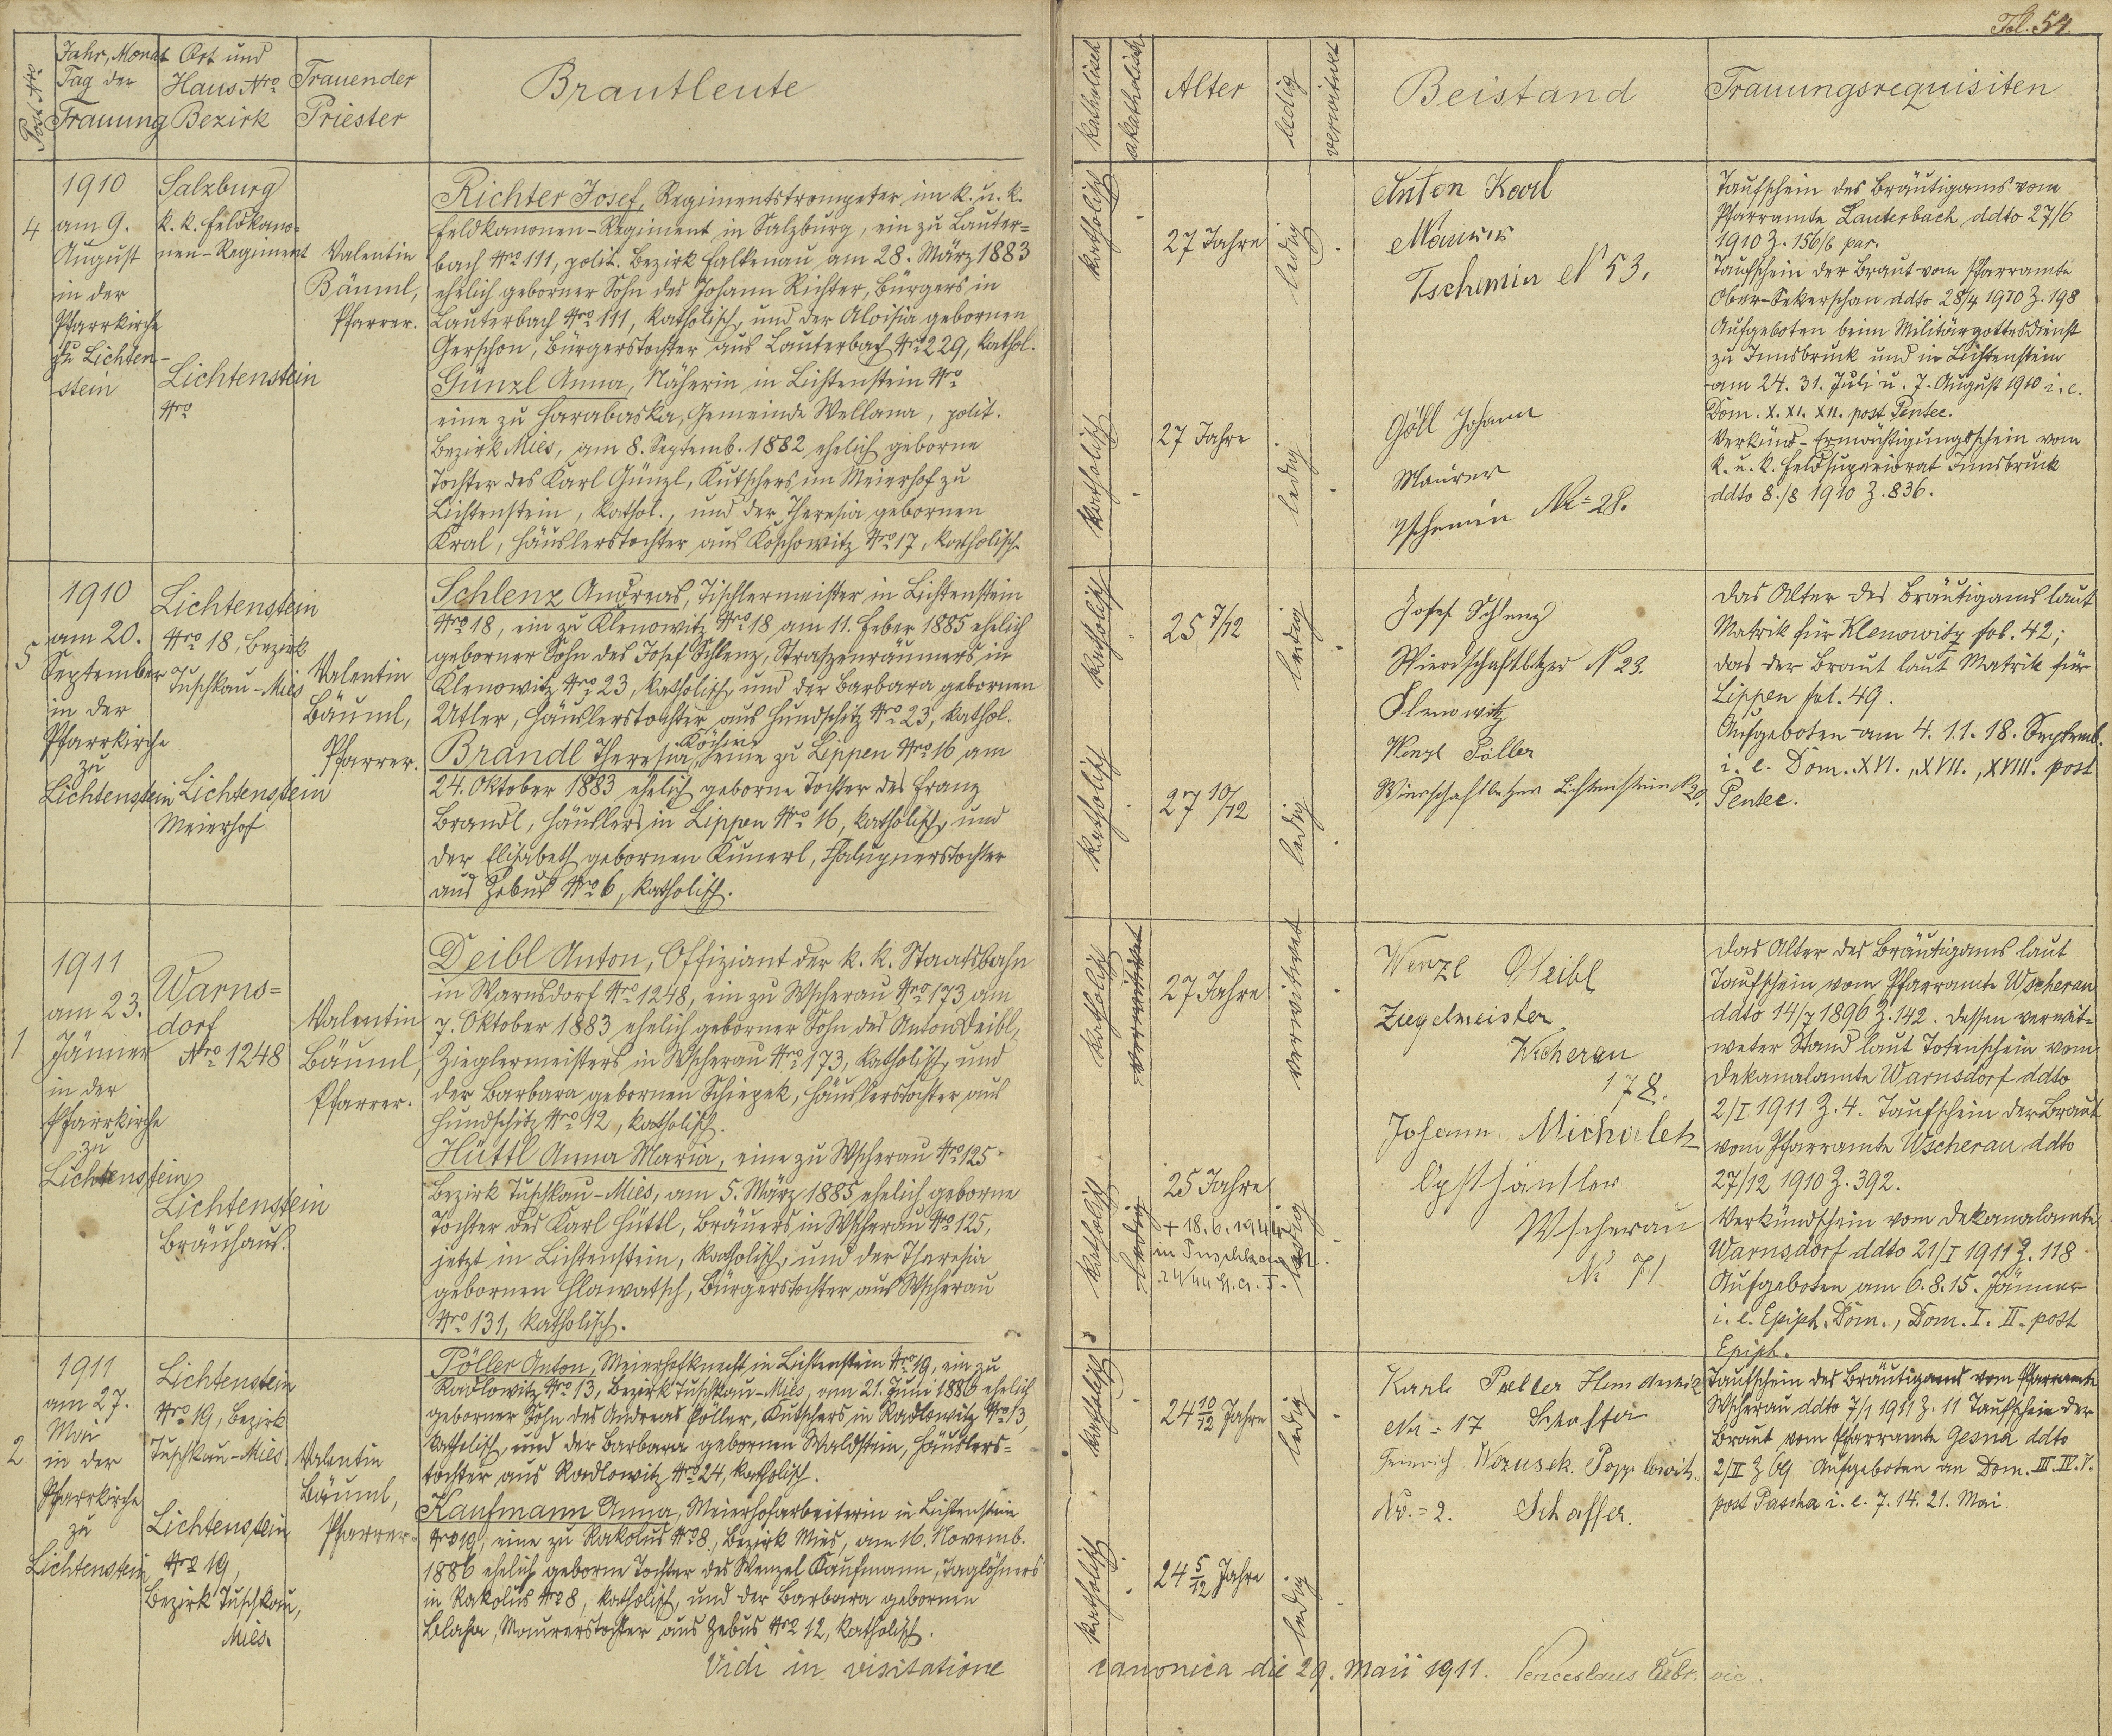 Fol. 54.
Post Nro
Jahr, Monat
Tag der
Trauung
Ort und
Haus Nro
Bezirk
Trauender
Priester
Brautleute
katholisch
akatholisch
Alter
ledig
verwitwet
Beistand
Trauungsrequisiten
4
1910
am 9.
August
in der
Pfarrkirche
zu Lichten-
stein
Salzburg
k. k. Feldkano-
nen-Regiment
Lichtenstein
Nro
Valentin
Bäuml,
Pfarrer.
Richter Josef, Regimentstrompeter im k. u. k.
Feldkanonen-Regiment in Salzburg, ein zu Lauter=
bach Nro 111, polit. Bezirk Falkenau am 28. März 1883
ehelich geborner Sohn des Johann Richter, Bürgers in
Lauterbach Nro 111, katholisch, und der Aloisia gebornen
Gerschon, Bürgerstochter aus Lauterbach Nro 229, kathol.
Günzl Anna, Näherin in Lichtenstein Nro
eine zu Harabaska, Gemeinde Wellana, polit.
Bezirk Mies, am 8. Septemb. 1882 ehelich geborne
Tochter des Karl Günzl, Kutschers im Meierhof zu
Lichtenstein, kathol., und der Theresia gebornen
Kral, Häuslerstochter aus Koschowitz Nro 17, katholisch.
katholisch
27 Jahre
ledig
katholisch
27 Jahre
ledig
Anton Karl
Maurer
Tschemin N 53.
Göll Johann
Maurer
Tschemin Nr= 28.
Taufschein des Bräutigams vom
Pfarramte Lauterbach ddto 27/6
1910 Z. 156/6 par.
Taufschein der Braut vom Pfarramte
Ober-Sekerschan ddto 28/4 1910 Z. 198
Aufgeboten beim Militärgottesdienst
zu Innsbruck und in Lichtenstein
am 24. 31. Juli u. 7. August 1910 i. e.
Dom. X. XI. XII. post Pentec.
Verkünd-Ermächtigungsschein vom
k. u. k. Feldsuperiorat Innsbruck
ddto 8./8 1910 Z. 836.
5
1910
am 20.
September
in der
Pfarrkirche
zu
Lichtenstein
Lichtenstein
Nro 18, Bezirk
Tuschkau-Mies
Lichtenstein
Meierhof
Valentin
Bäuml,
Pfarrer.
Schlenz Andreas, Tischlermeister in Lichtenstein
Nro 18, ein zu Klenowitz Nro 18 am 11. Feber 1885 ehelich
geborner Sohn des Josef Schlenz, Straszenräumers in
Klenowitz Nro 23, katholisch, und der Barbara gebornen
Utler, Häuslerstochter aus Hundschitz Nro 23, kathol.
Köchin,
Brandl Theresia, eine zu Lippen Nro 16 am
24. Oktober 1883 ehelich geborne Tochter des Franz
Brandl, Häuslers in Lippen Nro 16, katholisch, und
der Elisabeth gebornen Kunerl, Chalupnerstochter
aus Zebus Nro 6, katholisch.
katholisch
25 7/12
ledig
katholisch
27 10/12
ledig
Josef Schlenz
Wierdschaftbtzer N 23.
Klenowitz
Wenzl Päller
Wierschaftbetzer Lichtenstein N 20.
Das Alter des Bräutigams laut
Matrik für Klenowitz fol. 42;
das der Braut laut Matrik für
Lippen fol. 49.
Aufgeboten am 4. 11. 18. Septemb.
i. e. Dom. XVI., XVII., XVIII. post
Pentec.
1
1911
am 23.
Jänner
in der
Pfarrkirche
zu
Lichtenstein
Warns=
dorf
Nro 1248
Lichtenstein
Bräuhaus.
Valentin
Bäuml,
Pfarrer.
Deibl Anton, Offiziant der k. k. Staatsbahn
in Warnsdorf Nro 1248, ein zu Wscherau Nro 173 am
7. Oktober 1883 ehelich geborner Sohn des Anton Deibl,
Zieglermeisters in Wscherau Nro 173, katholisch, und
der Barbara gebornen Schiepek, Häuslerstochter aus
Hundschitz Nro 12, katholisch.
Hüttl Anna Maria, eine zu Wscherau Nro 125
Bezirk Tuschkau-Mies, am 5. März 1885 ehelich geborne
Tochter des Karl Hüttl, Bräuers in Wscherau Nro 125,
jetzt in Lichtenstein, katholisch, und der Theresia
gebornen Hlawatsch, Bürgerstochter aus Wscherau
Nro 131, katholisch.
katholisch
verwitwet
27 Jahre
verwitwet
katholisch
ledig
25 Jahre
+ 18.6.1944
in Tuschkau
ledig
Wenzl Deibl
Ziegelmeister
Wscherau
178.
Johann Michalek
Opsthäntler
Wscherau
N 71
Das Alter des Bräutigams laut
Taufschein vom Pfarramte Wscherau
ddto 14/7 1896 Z. 142. Dessen verwit-
weter Stand laut Totenschein vom
Dekanalamte Warnsdorf ddto
2/I 1911 Z. 4. Taufschein der Braut
vom Pfarramte Wscherau ddto
27/12 1910 Z. 392.
Verkündschein vom Dekanalamte
Warnsdorf ddto 21/I 1911 Z. 118
Aufgeboten am 6. 8. 15. Jänner
i. e. Epiph. Dom., Dom. I. II. post
Epiph.
2
1911
am 27.
Mai
in der
Pfarrkirche
zu
Lichtenstein
Lichtenstein
Nro 19, Bezirk
Tuschkau-Mies.
Lichtenstein
Nro 19,
Bezirk Tuschkau,
Mies.
Valentin
Bäuml,
Pfarrer.
Pöller Anton, Meierhofknecht in Lichtenstein Nro 19, ein zu
Radlowitz Nro 13, Bezirk Tuschkau-Mies, am 21. Juni 1886 ehelich
geborner Sohn des Andreas Pöller, Kutschers in Radlowitz Nro 13,
katholisch, und der Barbara gebornen Waldstein, Häuslers=
tochter aus Radlowitz Nro 24, katholisch.
Kaufmann Anna, Meierhofarbeiterin in Lichtenstein
Nro 19, eine zu Rakolus Nro 8, Bezirk Mies, am 16. Novemb.
1886 ehelich geborne Tochter des Wenzel Kaufmann, Taglöhners
in Rakolus Nro 8, katholisch, und der Barbara gebornen
Blaha, Maurerstochter aus Zebus Nro 12, katholisch.
katholisch
24 10/12 Jahre
ledig
katholisch
24 5/12 Jahre
ledig
Karl Poeller
Nr = 17 Schaffer
Heinrich Wozusek. Popplowitz.
Nr. = 2. Schaffer.
Taufschein des Bräutigams vom Pfarramte
Wscherau ddto 7/1 1911 Z. 11 Taufschein der
Braut vom Pfarramte Gesna ddto
2/II Z 69 Aufgeboten an Dom. III. IV. V.
post Pascha i. e. 7. 14. 21. Mai.
Vidi in visitatione canonica die 29. Maii 1911. Venceslaus vic.